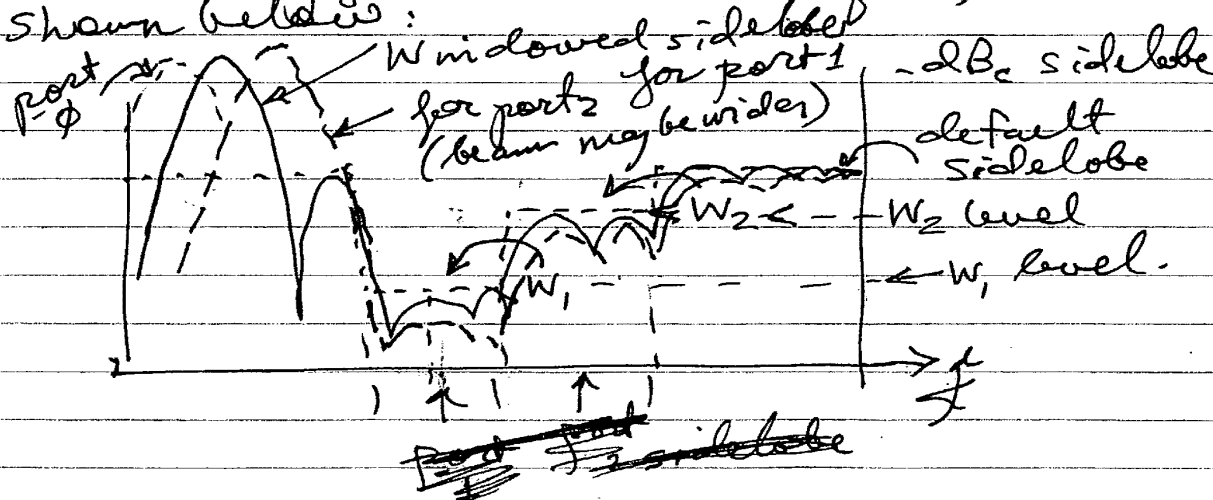 shown below :
Windowed sidelobes
for port 1
port
φ
for port 2
(beam may be wider)
-dBc sidelobe
default
sidelobe
W2 <- - - W2 level
W1
<- W1 level.
f
port port
1 2 sidelobe